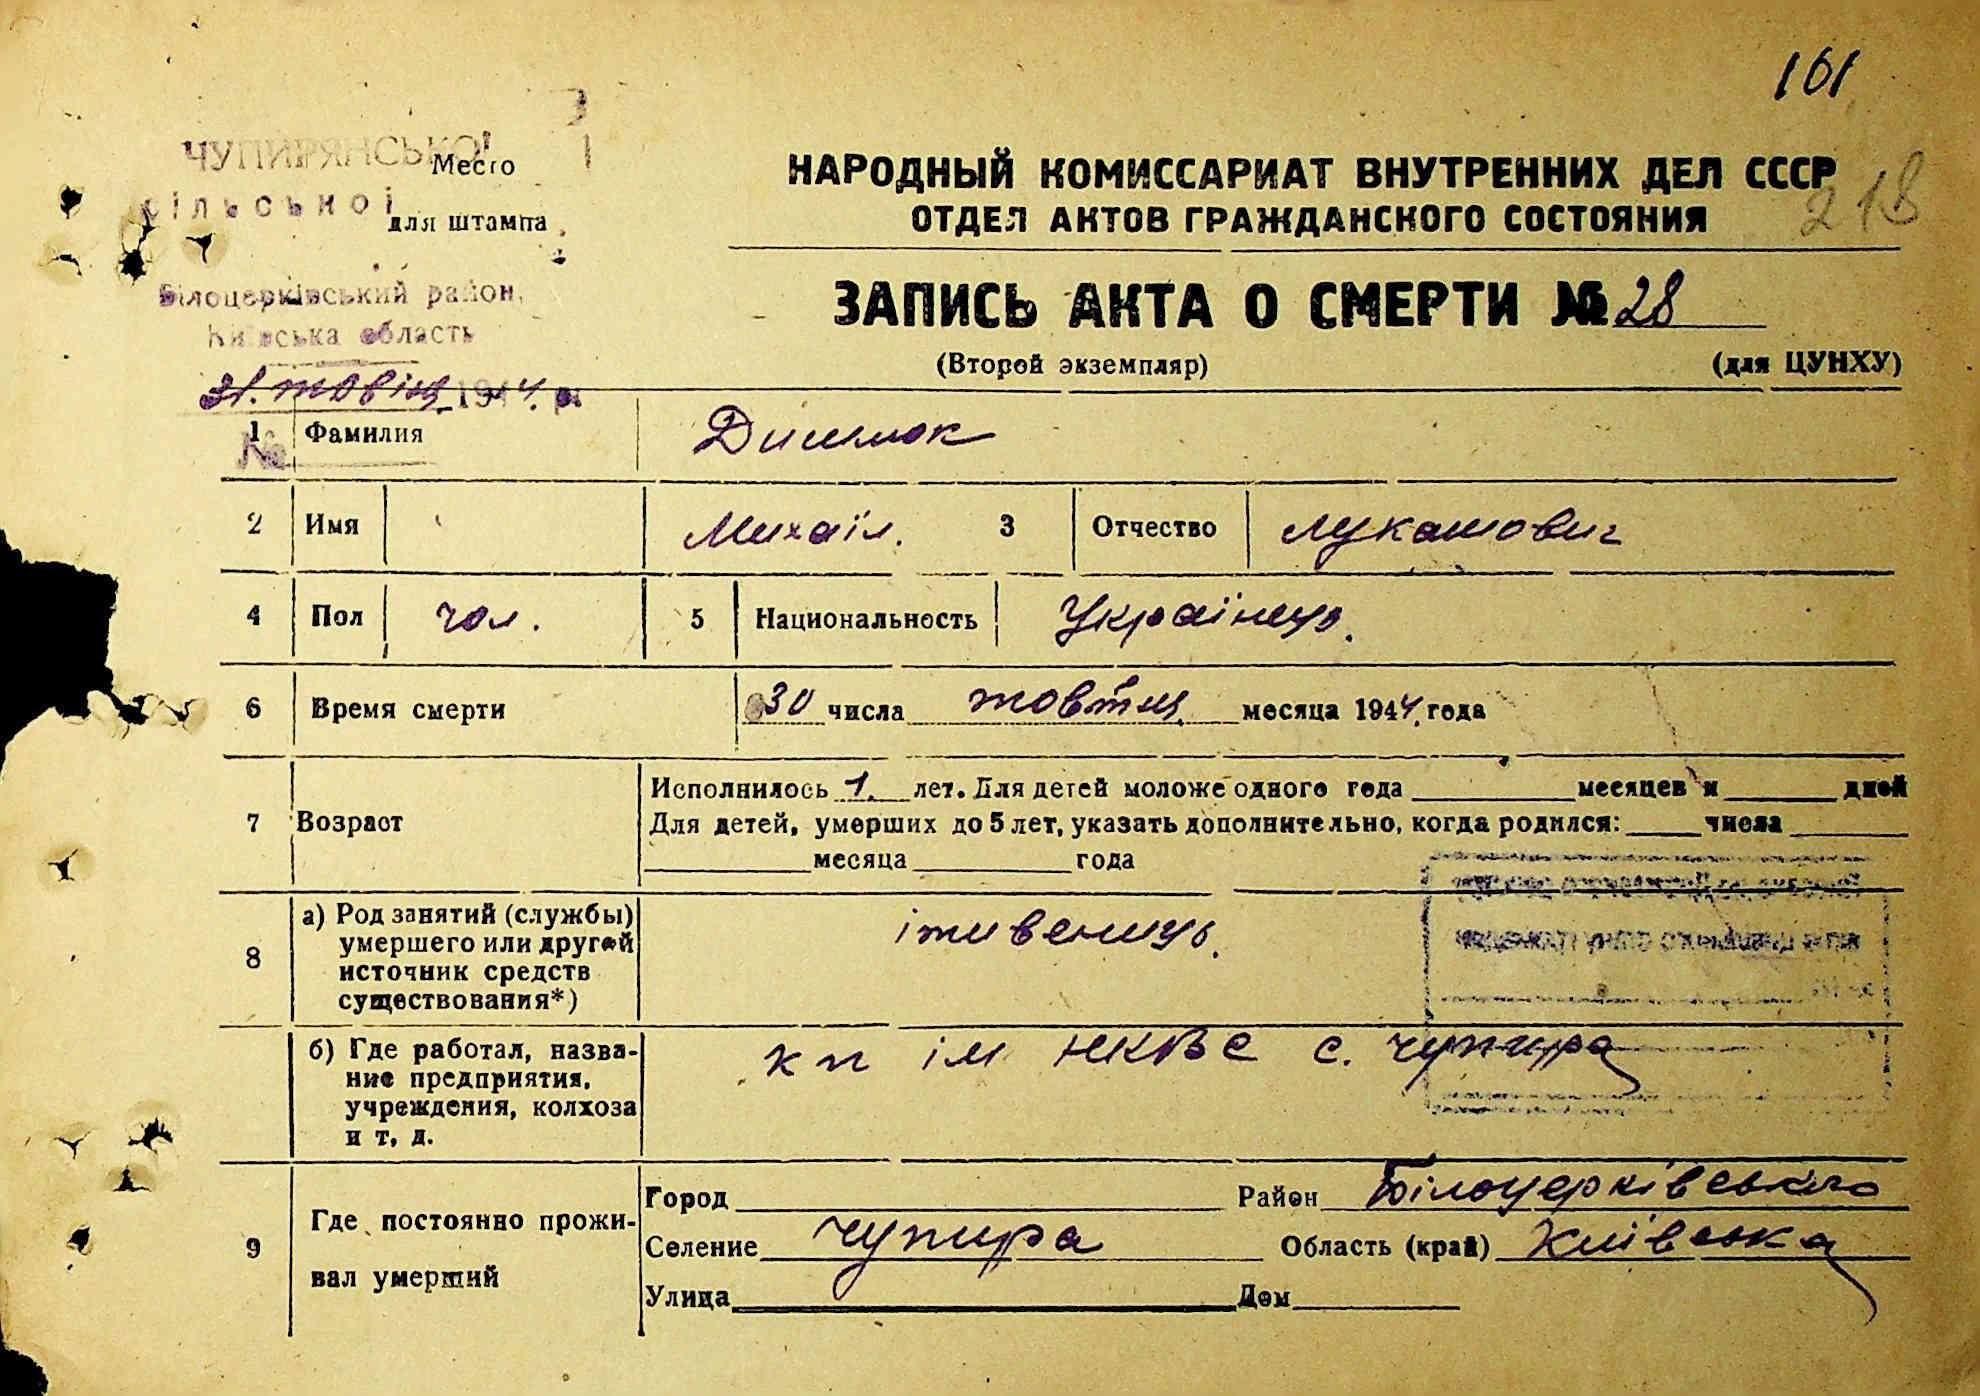 161
ЧУПИРЯНСЬКОЇ
Место
сільської
для штампа
НАРОДНЫЙ КОМИССАРИАТ ВНУТРЕННИХ ДЕЛ СССР
218
ОТДЕЛ АКТОВ ГРАЖДАНСКОГО СОСТОЯНИЯ
Білоцерківський район,
Київська область
ЗАПИСЬ АКТА О СМЕРТИ № 28
(Второй экземпляр) (для ЦУНХУ)
31. 1944 р.
№
1 Фамилия
2 Имя Михаіл. 3 Отчество Лукашович
4 Пол чол. 5 Национальность Українець.
6 Время смерти 30 числа жовтня месяца 1944. года
7 Возраст
Исполнилось 1. лет. Для детей моложе одного года месяцев и дней
Для детей, умерших до 5 лет, указать дополнительно, когда родился: числа
месяца года
8 а) Род занятий (службы)
умершего или другой
источник средств
существования*)
іживенець.
б) Где работал, назва-
ние предприятия,
учреждения, колхоза
и т. д.
кп ім НКВС с. Чупира
9 Где постоянно прожи-
вал умерший
Город Район Білоцерківського
Селение Чупира Область (край) Київська
Улица Дом